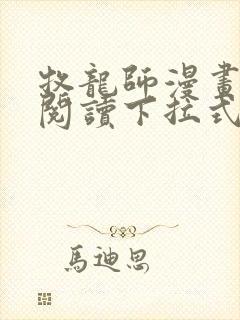 牧龍師漫畫
閱讀下拉式
馬迪恩